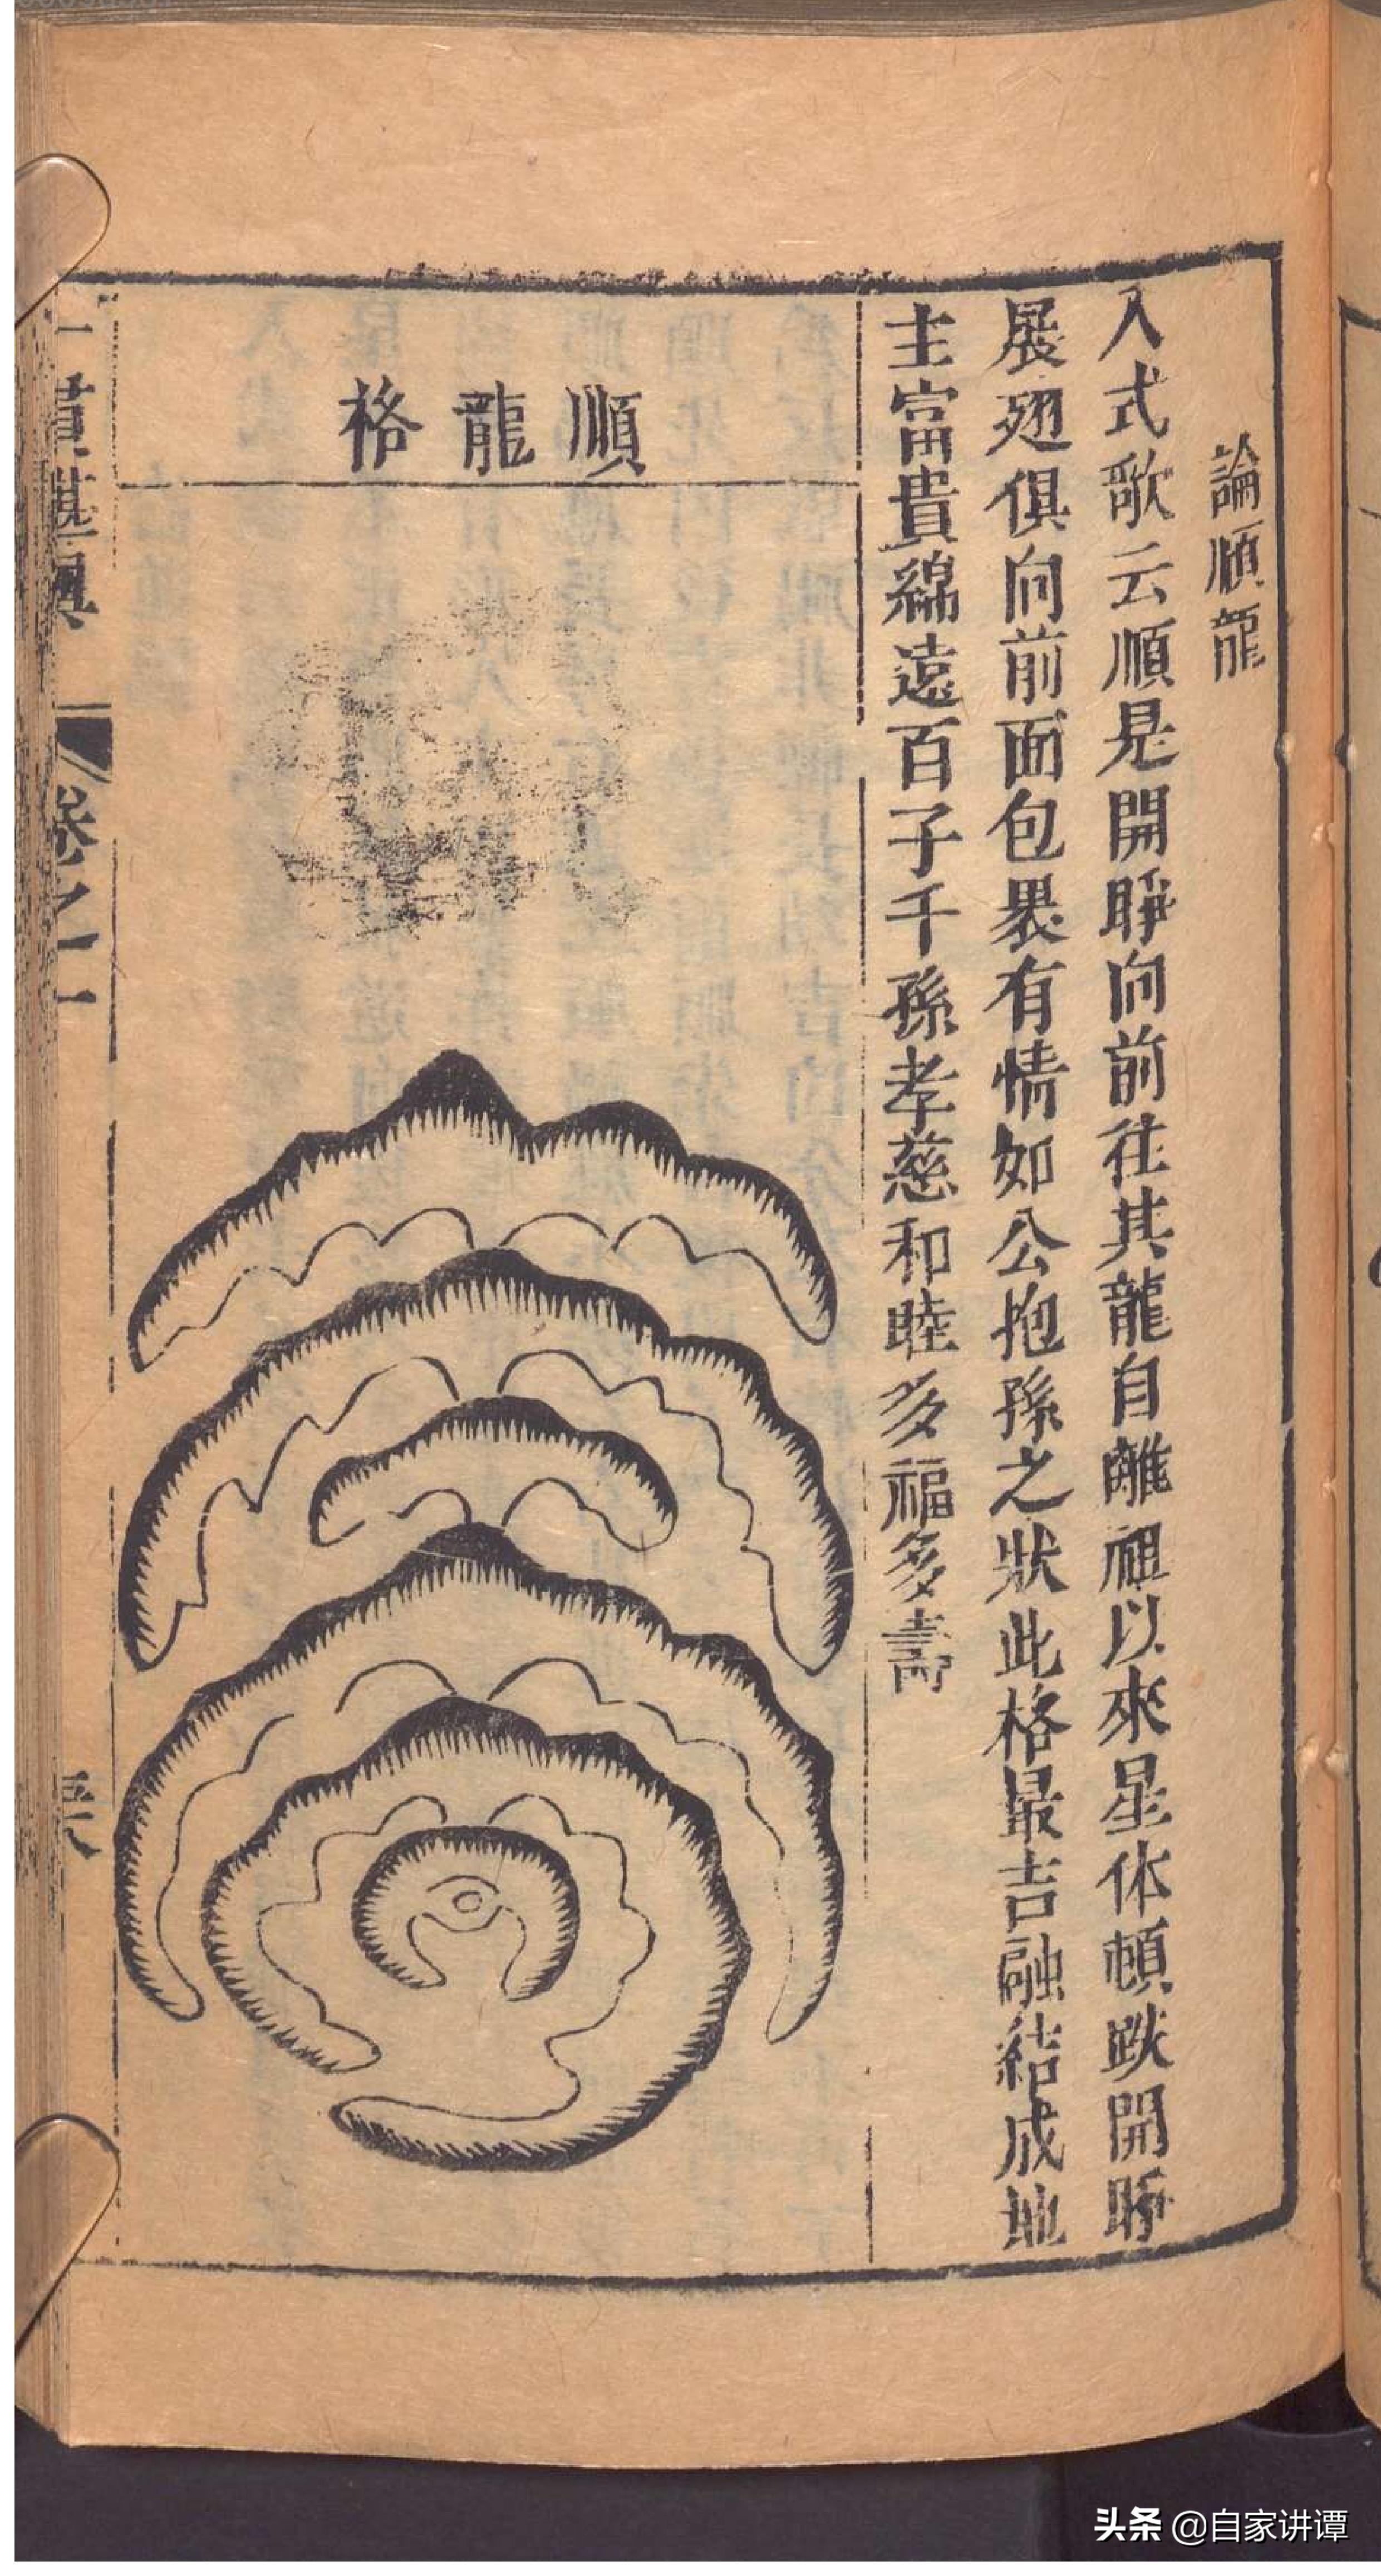 論順龍
入式歌云順是開睜向前往其龍自離祖以來星体頓跌開睜
展翅俱向前面包裹有情如公抱孫之狀此格最吉融結成地
主富貴綿遠百子千孫孝慈和睦多福多壽
順龍格
卷之一
头条 @自家讲谭